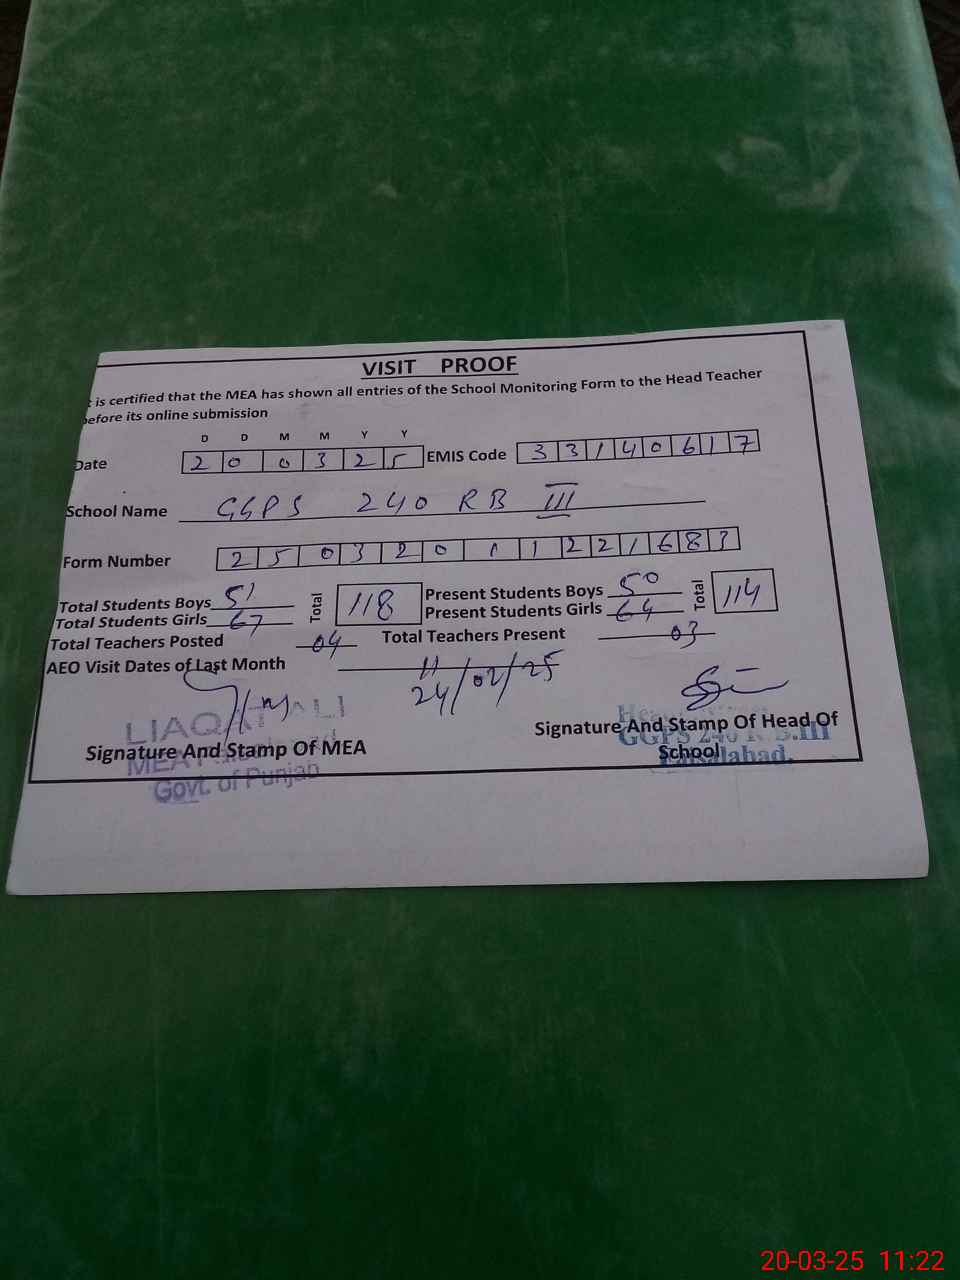 VISIT PROOF
t is certified that the MEA has shown all entries of the School Monitoring Form to the Head Teacher
before its online submission
D D M M Y Y
Date 2 0 0 3 2 5 EMIS Code 3 3 1 4 0 6 1 7
School Name GGPS 240 RB III
Form Number 2 5 0 3 2 0 1 1 2 2 1 6 8 3
Total Students Boys 51 Total 118 Present Students Boys 50 Total 114
Total Students Girls 67 Present Students Girls 64
Total Teachers Posted 04 Total Teachers Present 03
AEO Visit Dates of Last Month 11
24/02/25
LIAQAT ALI
Signature And Stamp Of MEA
MEA
Govt. of Punjab
Signature And Stamp Of Head Of
School
GGPS 240 R.B.III
Faisalabad.
20-03-25 11:22